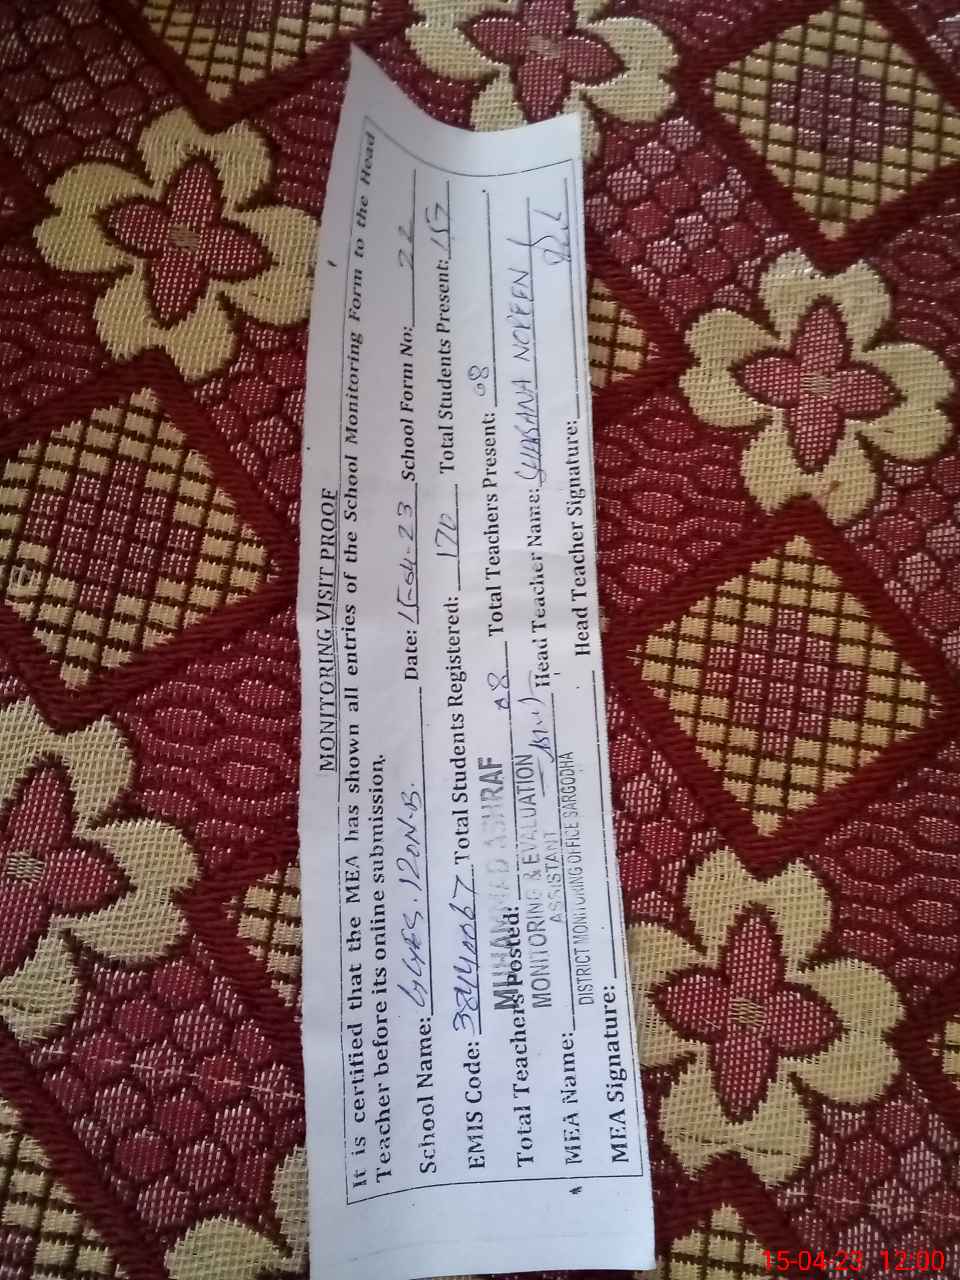 MONITORING VISIT PROOF
It is certified that the MEA has shown all entries of the School Monitoring Form to the Head
Teacher before its online submission.
School Name: Date: 15-04-23 School Form No: 22
EMIS Code: Total Students Registered: 170 Total Students Present:
Total Teachers Posted: 08 Total Teachers Present: 08
MUHAMMAD ASHRAF
MONITORING & EVALUATION
ASSISTANT
DISTRICT MONITORING OFFICE SARGODHA
MEA Name: Head Teacher Name: SHABANA NOREEN
MEA Signature: Head Teacher Signature:
15-04-23 12:00